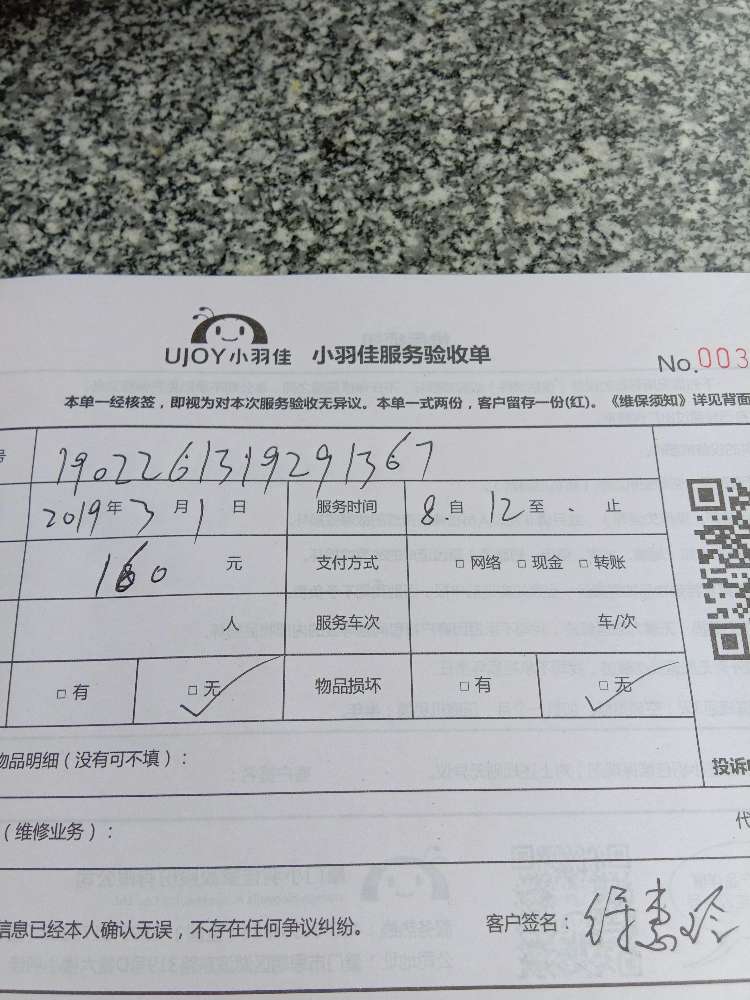 UJOY小羽佳 小羽佳服务验收单
No.003
本单一经核签，即视为对本次服务验收无异议。本单一式两份，客户留存一份(红)。《维保须知》详见背面
号 1902261319291367
2019年3月1日 服务时间 8自12至 止
160元 支付方式 □网络 □现金 □转账
人 服务车次 车/次
□有 □无 物品损坏 □有 □无
物品明细（没有可不填）：
投诉
（维修业务）：
代
信息已经本人确认无误，不存在任何争议纠纷。 客户签名：徐惠玲